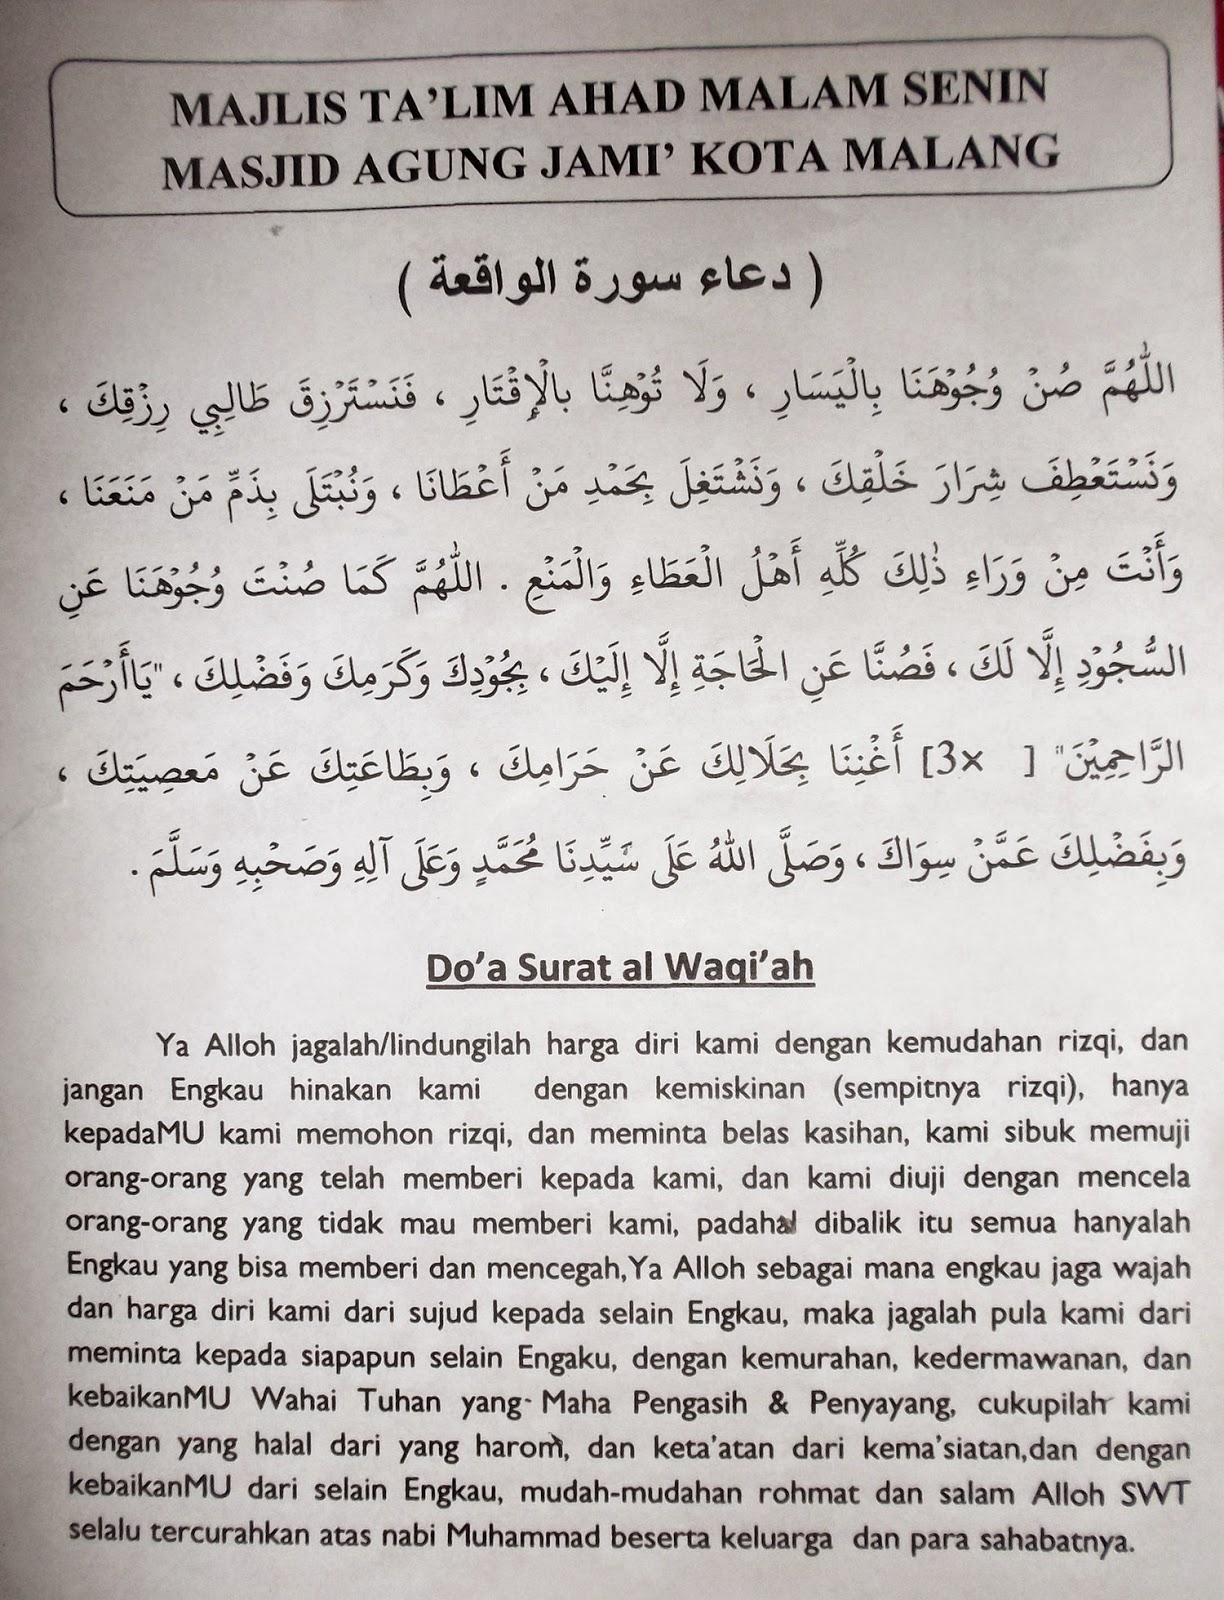 MAJLIS TA'LIM AHAD MALAM SENIN
MASJID AGUNG JAMI' KOTA MALANG
( دعاء سورة الواقعة )
اللّٰهُمَّ صُنْ وُجُوْهَنَا بِالْيَسَارِ ، وَلَا تُوْهِنَّا بالْإِقْتَارِ ، فَنَسْتَرْزِقَ طَالِبِي رِزْقِكَ ،
وَنَسْتَعْطِفَ شِرَارَ خَلْقِكَ ، وَنَشْتَغِلَ بِحَمْدِ مَنْ أَعْطَانَا ، وَنُبْتَلَى بِذَمِّ مَنْ مَنَعَنَا ،
وَأَنْتَ مِنْ وَرَاءِ ذٰلِكَ كُلِّهِ أَهْلُ الْعَطَاءِ وَالْمَنْعِ . اللّٰهُمَّ كَمَا صُنْتَ وُجُوْهَنَا عَنِ
السُّجُوْدِ إِلَّا لَكَ ، فَصُنَّا عَنِ الْحَاجَةِ إِلَّا إِلَيْكَ ، بِجُوْدِكَ وَكَرَمِكَ وَفَضْلِكَ ، "يَاأَرْحَمَ
الرَّاحِمِيْنَ" [ 3× ] أَغْنِنَا بِحَلَالِكَ عَنْ حَرَامِكَ ، وَبِطَاعَتِكَ عَنْ مَعصِيَتِكَ ،
وَبِفَضْلِكَ عَمَّنْ سِوَاكَ ، وَصَلَّى اللّٰهُ عَلَى سَيِّدِنَا مُحَمَّدٍ وَعَلَى آلِهِ وَصَحْبِهِ وَسَلَّمَ .
Do'a Surat al Waqi'ah
Ya Alloh jagalah/lindungilah harga diri kami dengan kemudahan rizqi, dan
jangan Engkau hinakan kami dengan kemiskinan (sempitnya rizqi), hanya
kepadaMU kami memohon rizqi, dan meminta belas kasihan, kami sibuk memuji
orang-orang yang telah memberi kepada kami, dan kami diuji dengan mencela
orang-orang yang tidak mau memberi kami, padahal dibalik itu semua hanyalah
Engkau yang bisa memberi dan mencegah,Ya Alloh sebagai mana engkau jaga wajah
dan harga diri kami dari sujud kepada selain Engkau, maka jagalah pula kami dari
meminta kepada siapapun selain Engaku, dengan kemurahan, kedermawanan, dan
kebaikanMU Wahai Tuhan yang Maha Pengasih & Penyayang, cukupilah kami
dengan yang halal dari yang harom, dan keta'atan dari kema'siatan,dan dengan
kebaikanMU dari selain Engkau, mudah-mudahan rohmat dan salam Alloh SWT
selalu tercurahkan atas nabi Muhammad beserta keluarga dan para sahabatnya.